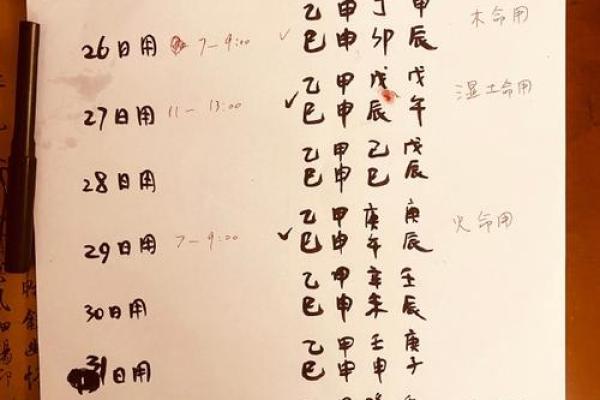 乙 甲 丁 甲
26日用 7-9:00 ✓ 巳 申 卯 辰 木命用
乙 甲 戊 戊
27日用 11-13:00 ✓ 巳 申 辰 午 湿土命用
乙 甲 己 戊
28日用 巳 申 巳 辰
乙 甲 庚 庚
29日用 7-9:00 ✓ 巳 申 午 辰 火命用
乙 甲 辛 壬
30日用 巳 申 未 辰
乙 甲 壬 庚
31日用 巳 申 申 子